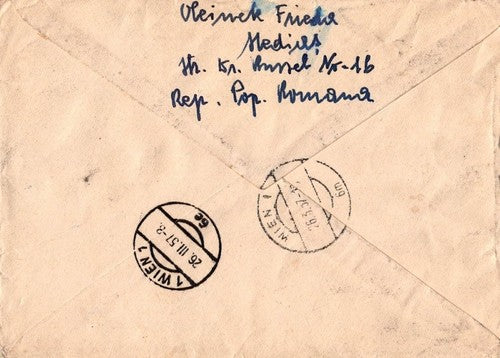 Oleinek Frieda
Mediaș
Str. Kr. Russel Nr-16
Rep. Pop. Romana
WIEN 1
26.3.57-1
6m
1 WIEN 1
26.III.57-8
6e